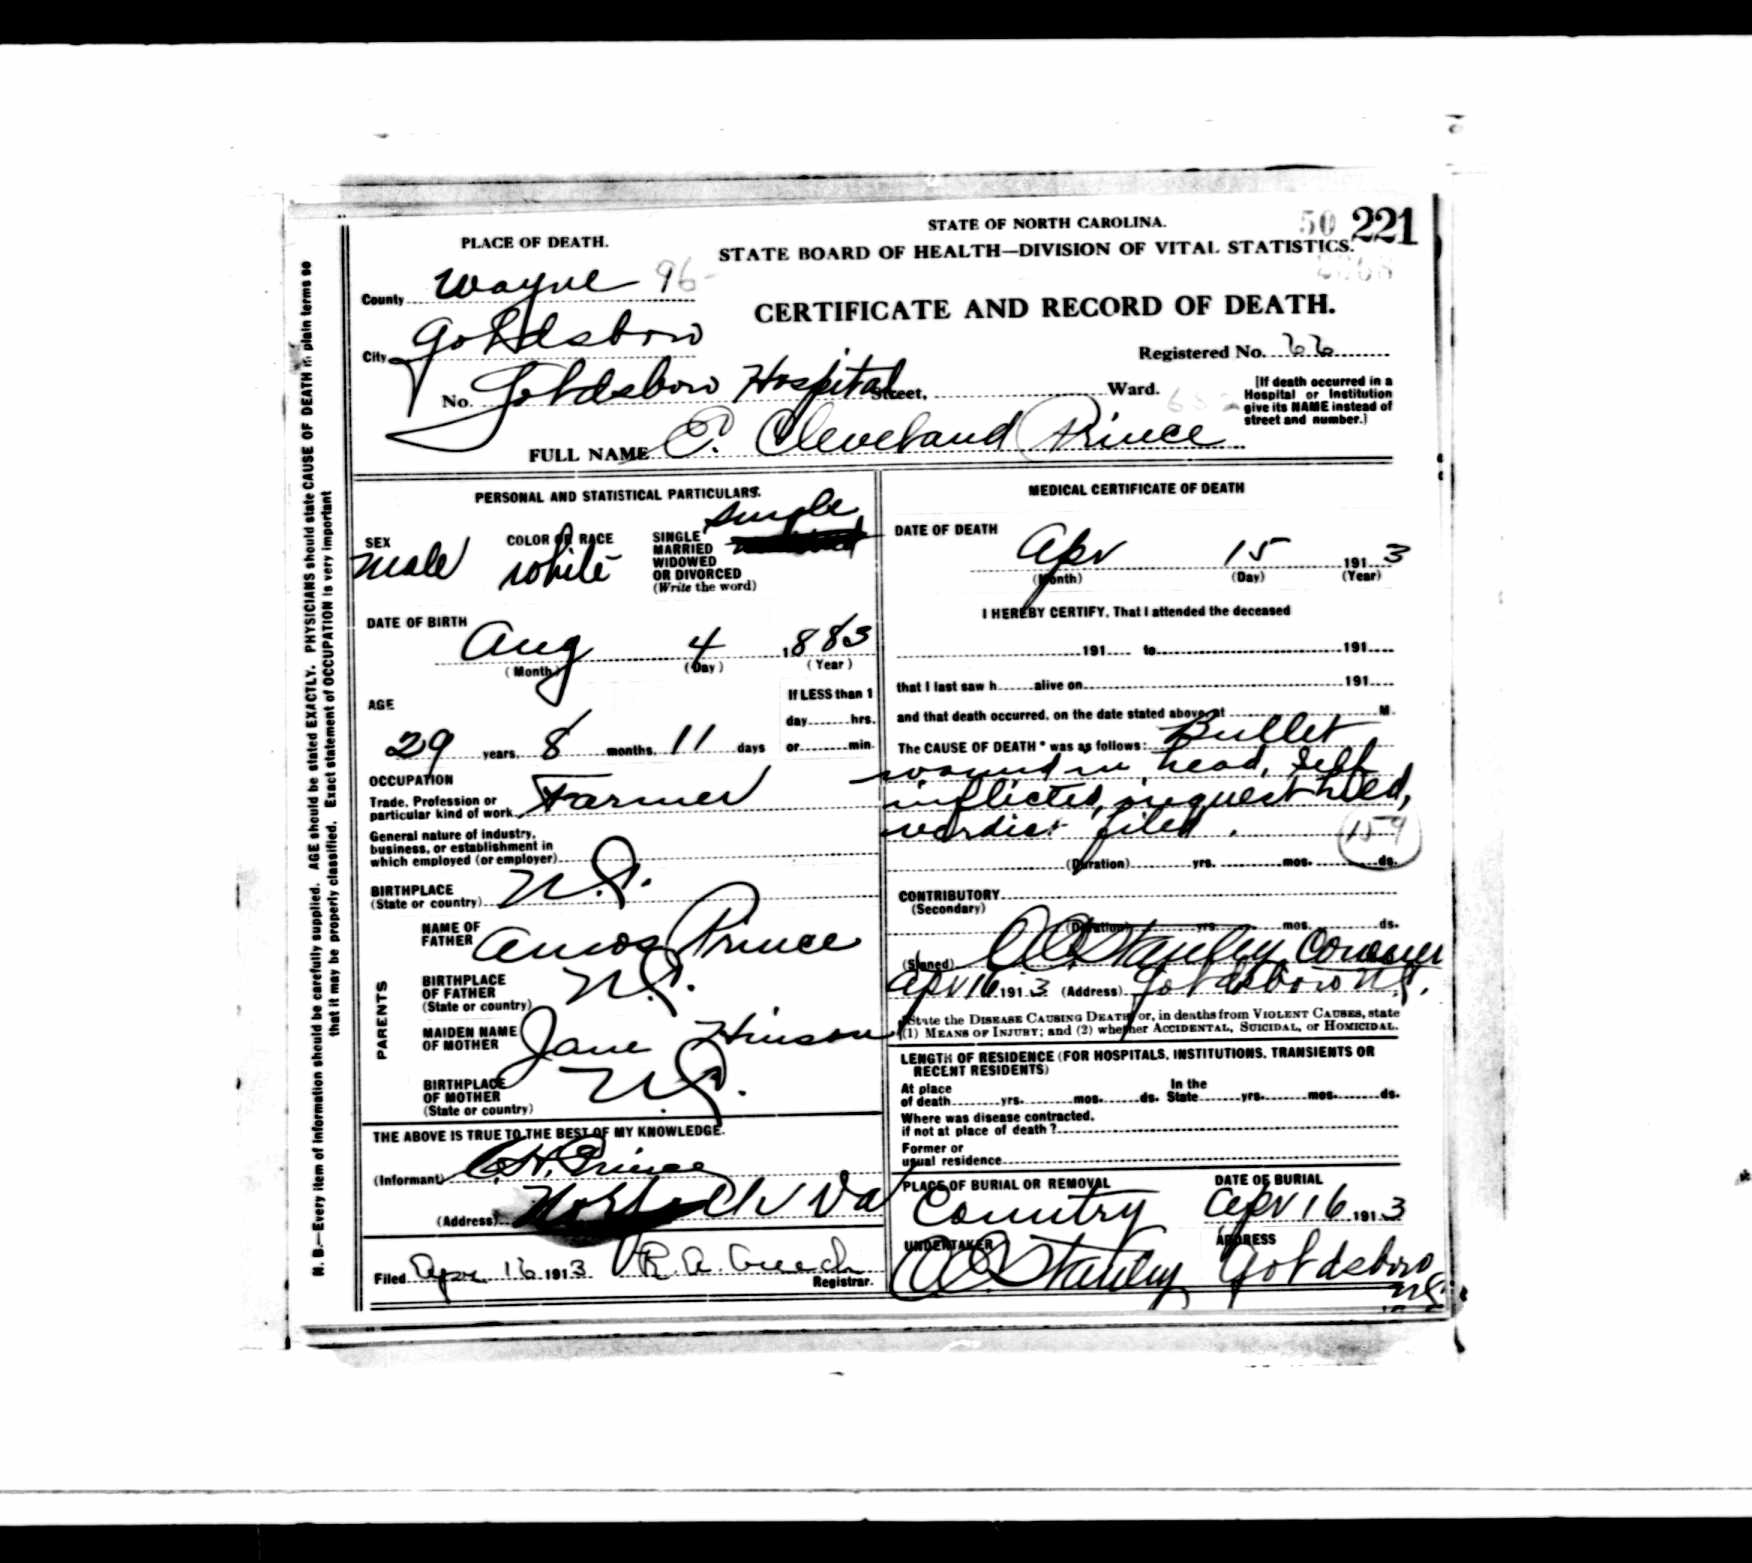 50 221
STATE OF NORTH CAROLINA.
STATE BOARD OF HEALTH—DIVISION OF VITAL STATISTICS.
CERTIFICATE AND RECORD OF DEATH.
PLACE OF DEATH.
County Wayne 96-
City Goldsboro
Registered No. 66
No. Goldsboro Hospital Street, Ward.
[If death occurred in a
Hospital or Institution
give its NAME instead of
street and number.]
FULL NAME E. Cleveland Prince
N. B.—Every item of information should be carefully supplied. AGE should be stated EXACTLY. PHYSICIANS should state CAUSE OF DEATH in plain terms so
that it may be properly classified. Exact statement of OCCUPATION is very important
PERSONAL AND STATISTICAL PARTICULARS.
SEX
male
COLOR OR RACE
white
SINGLE
MARRIED
WIDOWED
OR DIVORCED
(Write the word)
single
DATE OF BIRTH
Aug 4 1883
(Month) (Day) (Year)
AGE
29 years, 8 months, 11 days
If LESS than 1
day hrs.
or min.
OCCUPATION
Trade, Profession or
particular kind of work Farmer
General nature of industry,
business, or establishment in
which employed (or employer)
BIRTHPLACE
(State or country) N.C.
PARENTS
NAME OF
FATHER Amos Prince
BIRTHPLACE
OF FATHER
(State or country) N.C.
MAIDEN NAME
OF MOTHER Jane Hinson
BIRTHPLACE
OF MOTHER
(State or country) N.C.
THE ABOVE IS TRUE TO THE BEST OF MY KNOWLEDGE.
(Informant) C.H. Prince
(Address) Norfolk Va
Filed Apr 16 1913 R. A. Creech
Registrar.
MEDICAL CERTIFICATE OF DEATH
DATE OF DEATH
Apr 15 1913
(Month) (Day) (Year)
I HEREBY CERTIFY, That I attended the deceased
191 to 191
that I last saw h alive on 191
and that death occurred, on the date stated above, at M.
The CAUSE OF DEATH* was as follows: Bullet
wound in head, self
inflicted, inquest held,
verdict filed.
159
(Duration) yrs. mos. ds.
CONTRIBUTORY
(Secondary)
(Duration) yrs. mos. ds.
(Signed) Stanley Coroner
Apr 16 1913 (Address) Goldsboro N.C.
*State the DISEASE CAUSING DEATH, or, in deaths from VIOLENT CAUSES, state
(1) MEANS OF INJURY; and (2) whether ACCIDENTAL, SUICIDAL, or HOMICIDAL.
LENGTH OF RESIDENCE (FOR HOSPITALS, INSTITUTIONS, TRANSIENTS OR
RECENT RESIDENTS)
At place
of death yrs. mos. ds.
In the
State yrs. mos. ds.
Where was disease contracted,
if not at place of death?
Former or
usual residence
PLACE OF BURIAL OR REMOVAL
Country
DATE OF BURIAL
Apr 16 1913
UNDERTAKER
Stanley
ADDRESS
Goldsboro
N.C.